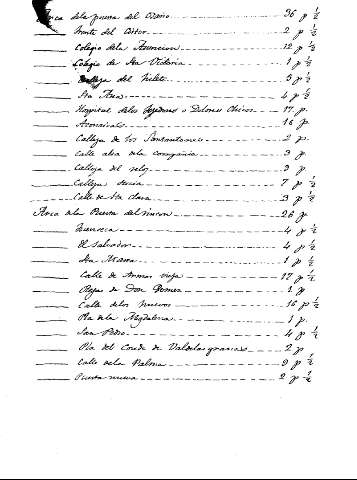 Arca dela puerta del Osario 36 p ½
frente del Cistor 2 p ½
Colegio dela Asuncion 12 p ½
Colegio de Sta Victoria 1 p ½
Calleja del Niclete 5 p ½
Sta Ana 4 p ½
Hospital delos o Dolores Chicos 17 p.
16 p.
Calleja de los Santontones 2 p.
Calle alta dela compañia 3 p
Calleja del reloj 3 p
Calleja sucia 7 p ½
Calle de Sta Clara 3 p ½
Arca dela Puerta del rincon 26 p
4 p ½
El Salvador 4 p ½
Sta Marta 1 p ½
Calle de Armas vieja 17 p ½
Rejas de Don Gomez 1 p
Calle delos Huevos 16 p ½
Pla de la Magdalena 1 p.
San Pedro 4 p ½
Pla del Conde de Valdelasgranas 2 p
Calle dela Palma 9 p ½
Puerta nueva 2 p ½